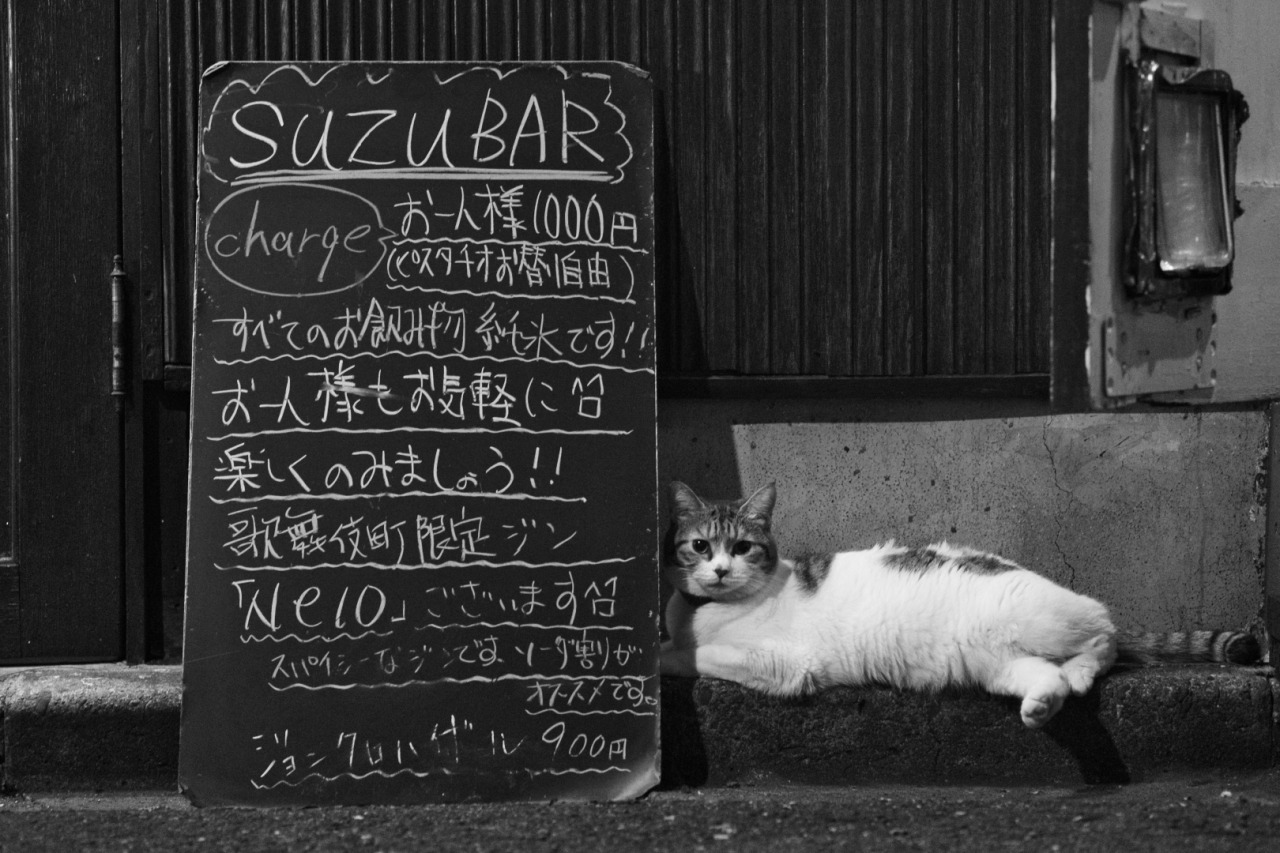 SUZUBAR
charge
お一人様1000円
(ピスタチオお替自由)
すべてのお飲み物純氷です!!
お一人様もお気軽に
楽しくのみましょう!!
歌舞伎町限定ジン
「Nelo」ございます
スパイシーなジンです。ソーダ割りが
オススメです。
ジョンクロハイボール 900円